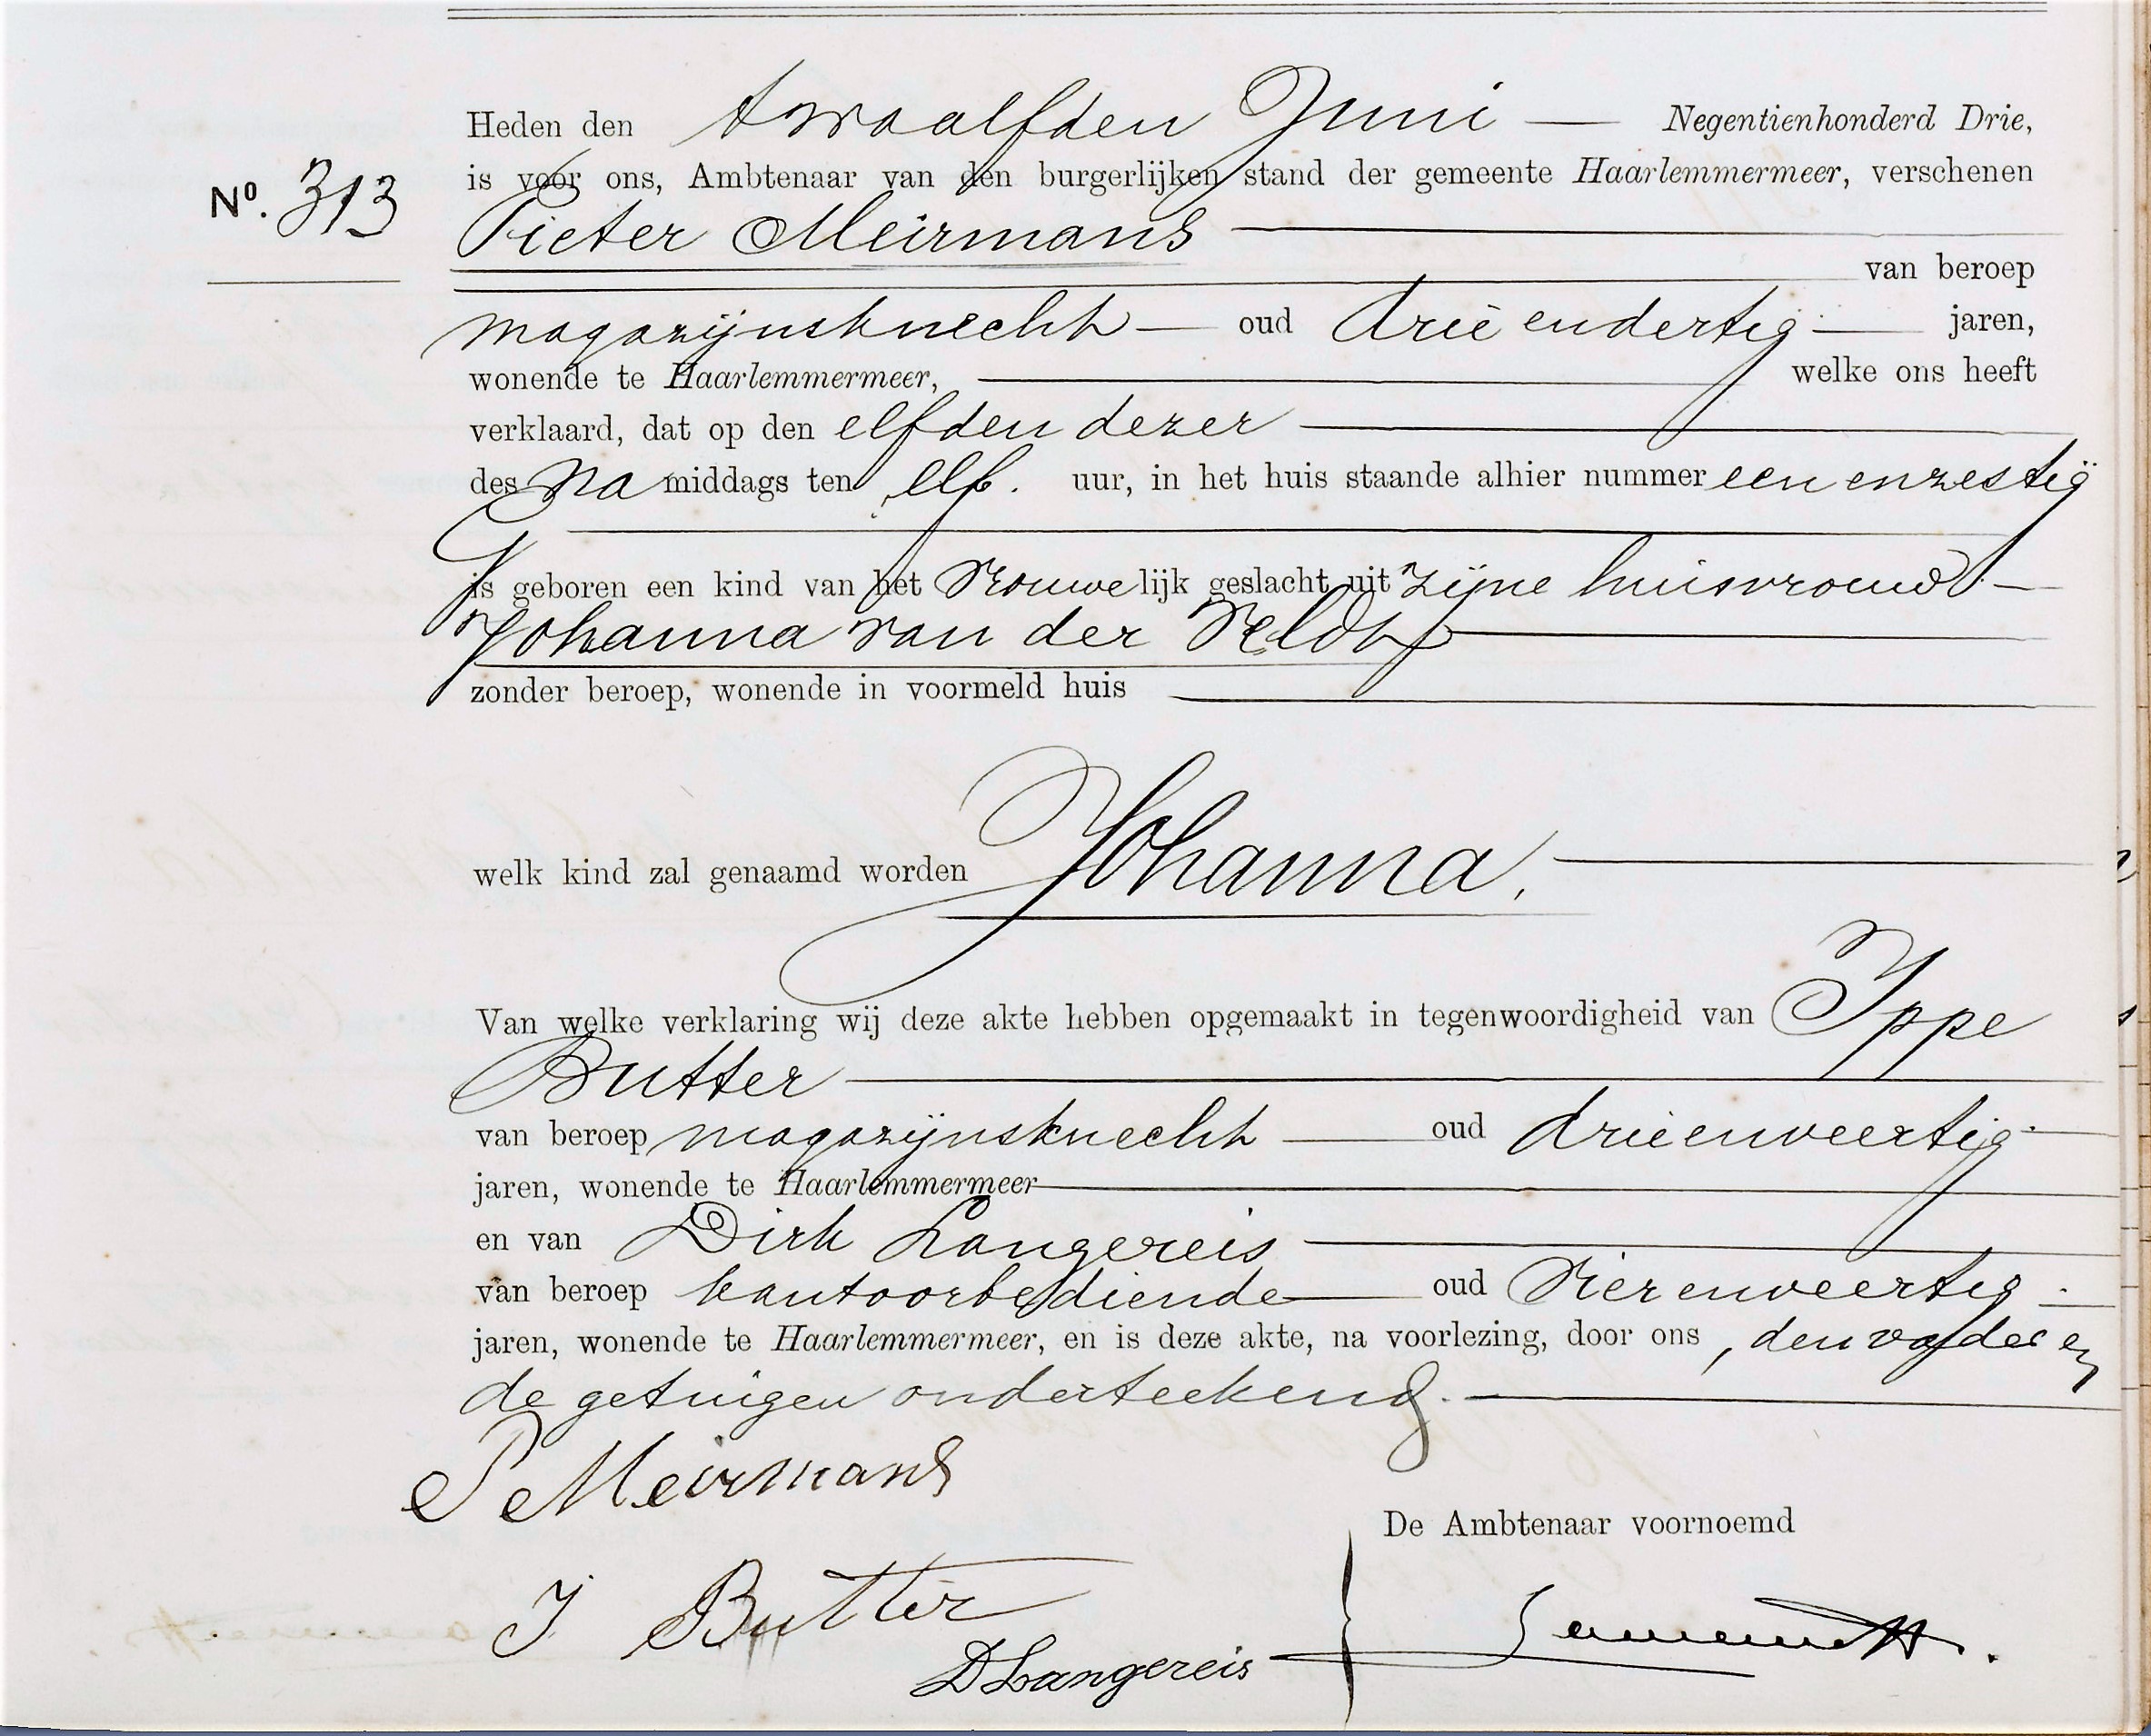 Heden den twaalfden Juni — Negentienhonderd Drie,
is voor ons, Ambtenaar van den burgerlijken stand der gemeente Haarlemmermeer, verschenen
No. 313
Pieter Meirmans
van beroep
magazijnsknecht — oud drie endertig — jaren,
wonende te Haarlemmermeer, welke ons heeft
verklaard, dat op den elfden dezer
des Na middags ten elf. uur, in het huis staande alhier nummer een enzestig
is geboren een kind van het Vrouwelijk geslacht uit zijne huisvrouw
Johanna van der Veldt
zonder beroep, wonende in voormeld huis
welk kind zal genaamd worden Johanna.
Van welke verklaring wij deze akte hebben opgemaakt in tegenwoordigheid van Ippe
Butter
van beroep magazijnsknecht — oud drieenveertig
jaren, wonende te Haarlemmermeer
en van Dirk Langereis
van beroep kantoorbediende — oud Vierenveertig
jaren, wonende te Haarlemmermeer, en is deze akte, na voorlezing, door ons, den vader en
de getuigen onderteekend.
P Meirmans
De Ambtenaar voornoemd
I Butter
D Langereis